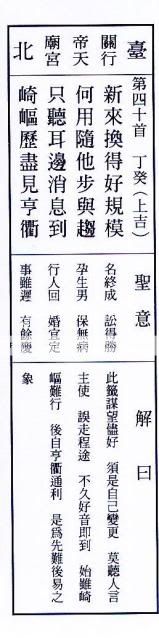 臺北
關帝廟
行天宮
第四十首 丁癸(上吉)
新來換得好規模
何用隨他步與趨
只聽耳邊消息到
崎嶇歷盡見亨衢
聖意
名終成 訟得勝
孕生男 保無病
行人回 婚宜定
事雖遲 有餘慶
解曰
此籤謀望儘好 須是自己變更 莫聽人言
主使 誤走程途 不久好音即到 始雖崎
嶇難行 後自亨衢通利 是為先難後易之
象